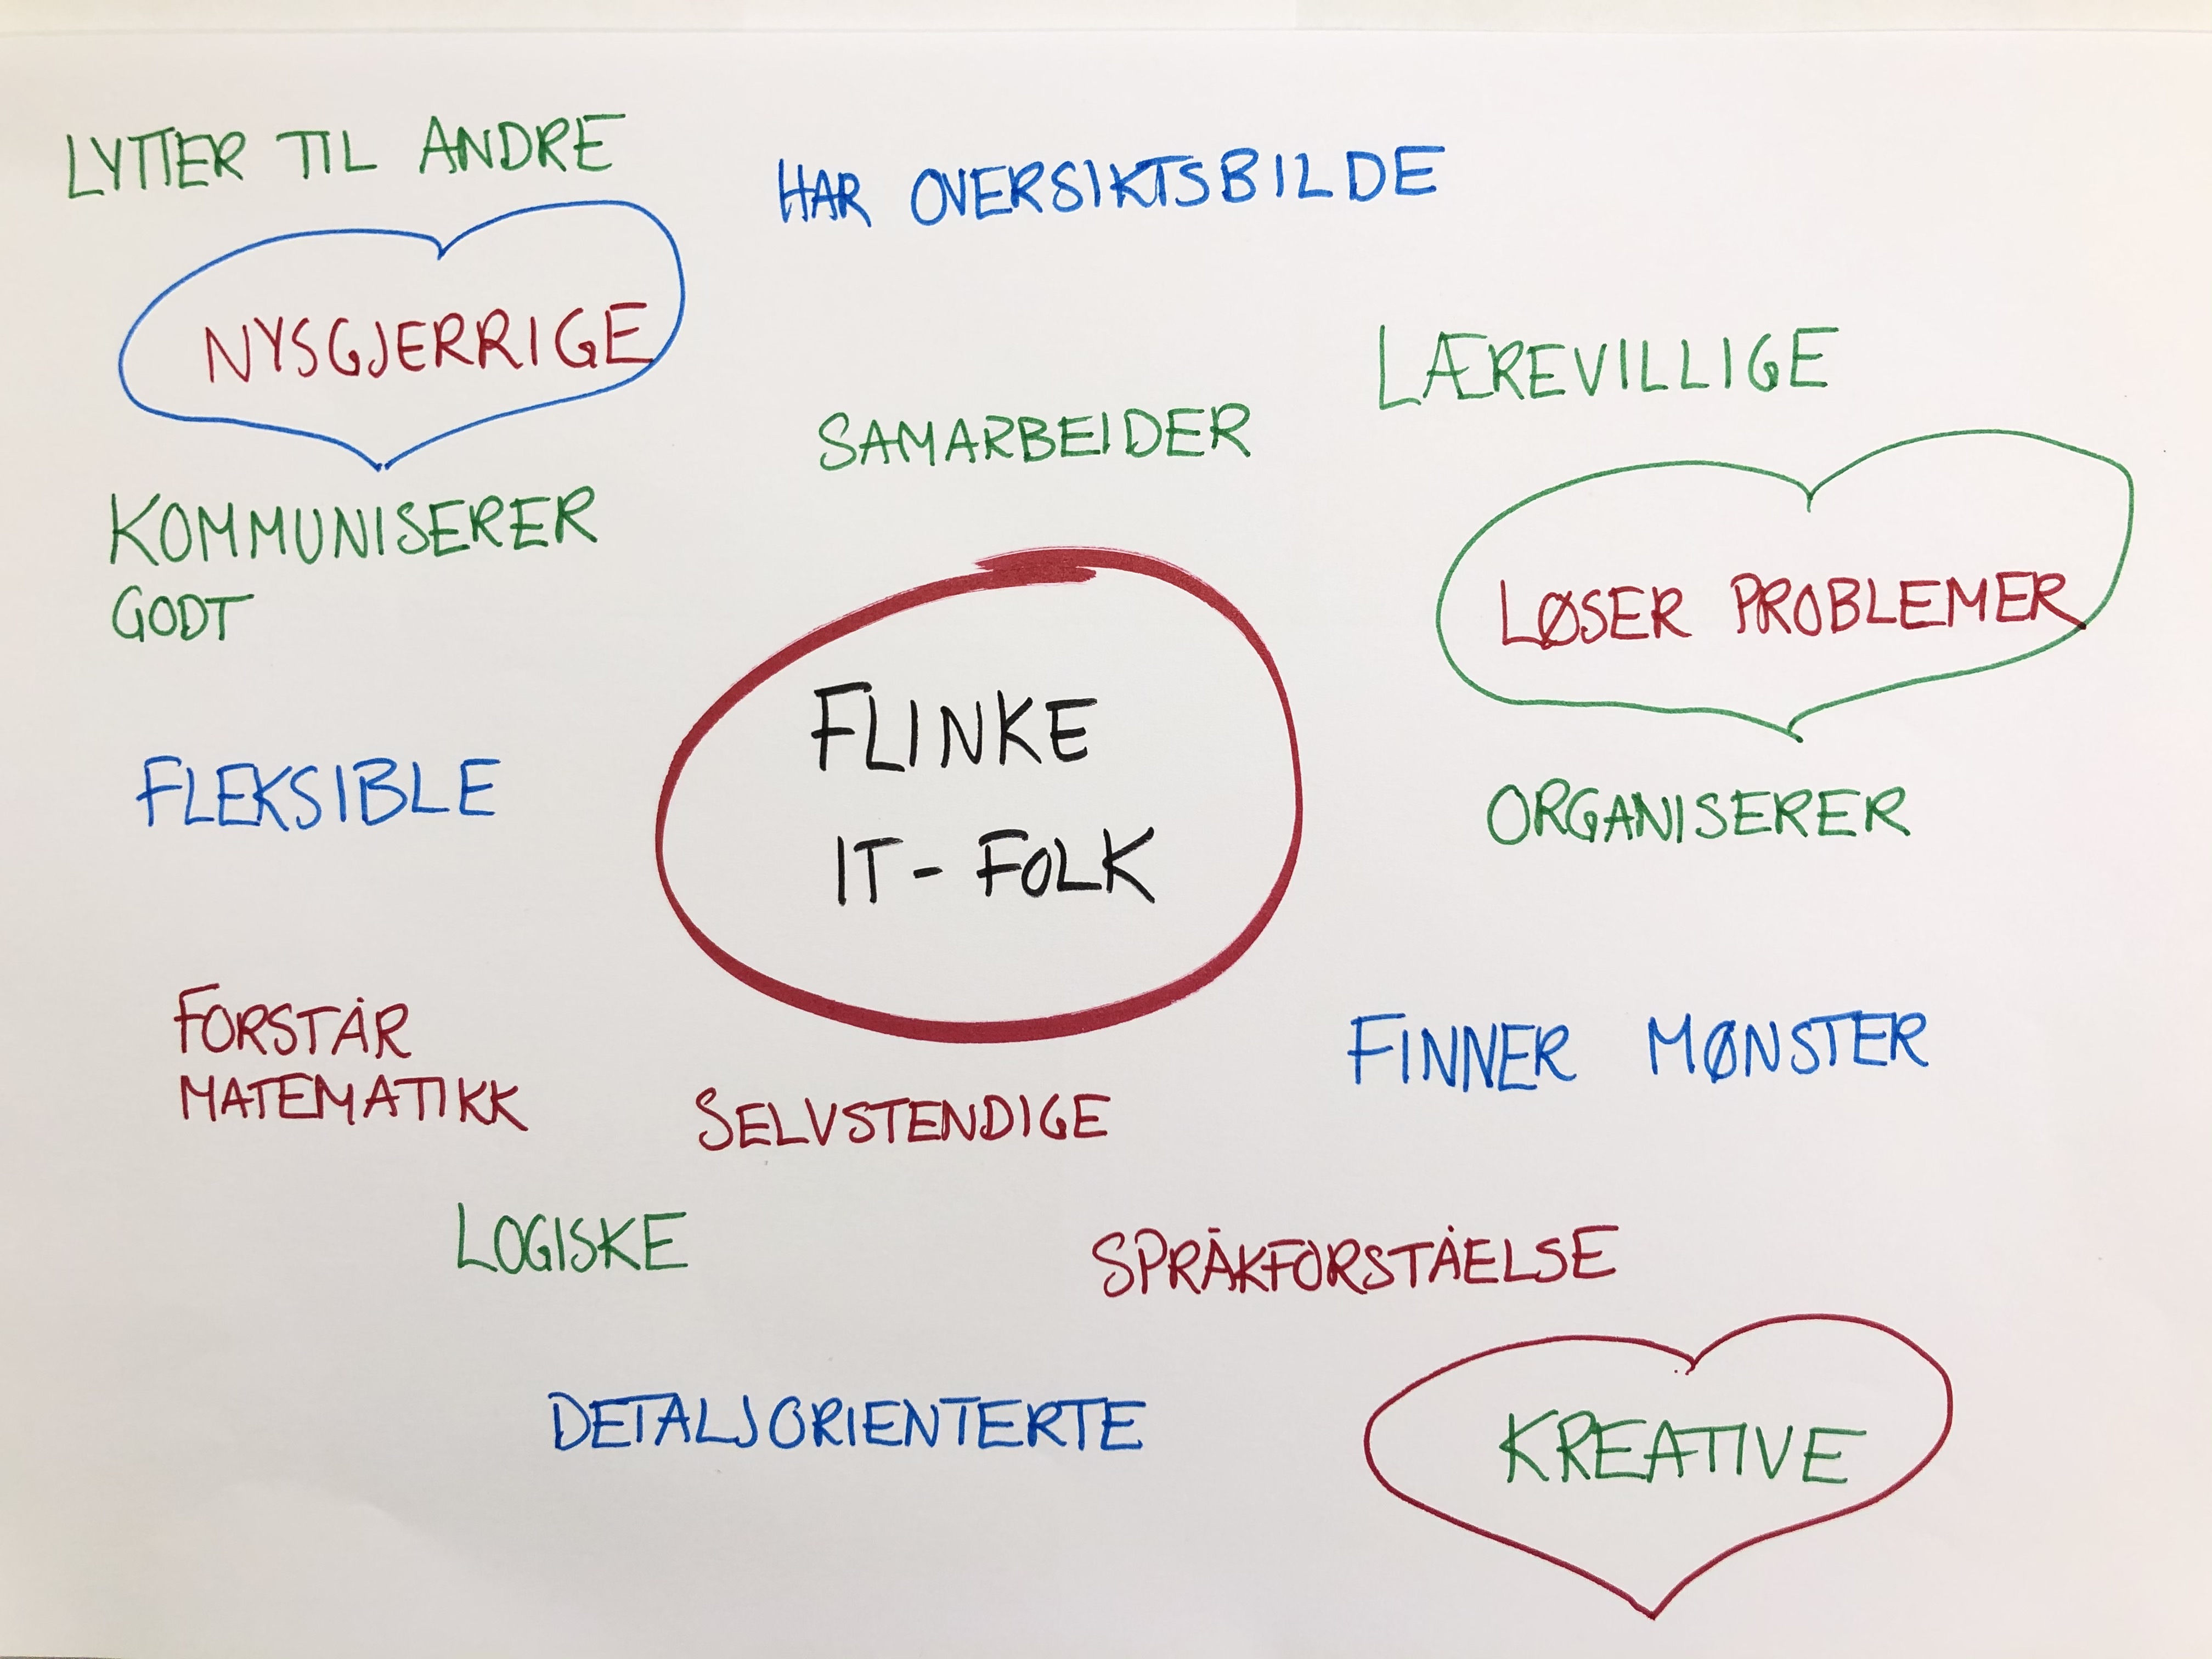 LYTTER TIL ANDRE
HAR OVERSIKTSBILDE
NYSGJERRIGE
LÆREVILLIGE
SAMARBEIDER
KOMMUNISERER
GODT
LØSER PROBLEMER
FLINKE
IT - FOLK
FLEKSIBLE
ORGANISERER
FORSTÅR
MATEMATIKK
FINNER MØNSTER
SELVSTENDIGE
LOGISKE
SPRÅKFORSTÅELSE
DETALJORIENTERTE
KREATIVE